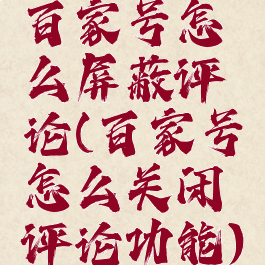 百家号怎
么屏蔽评
论(百家号
怎么关闭
评论功能)